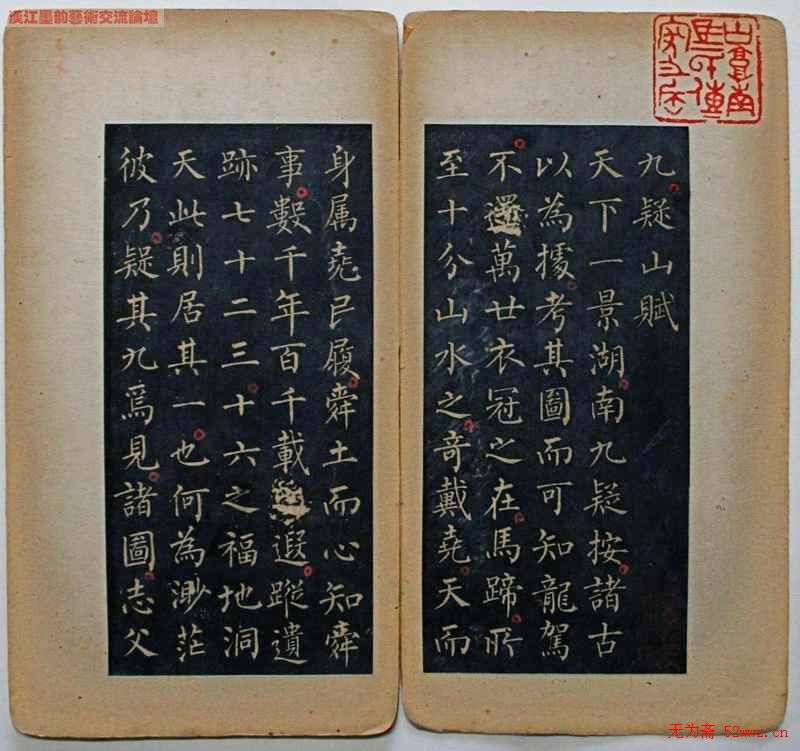 漢江墨韵藝術交流論壇
九疑山賦
天下一景湖南九疑按諸古
以為據考其圖而可知龍駕
不還萬世衣冠之在馬蹄所
至十分山水之奇戴堯天而
身属堯已履舜土而心知舜
事數千年百千載遐蹤遺
跡七十二三十六之福地洞
天此則居其一也何為渺茫
彼乃疑其九焉見諸圖志父
无为斋 52wwz.cn